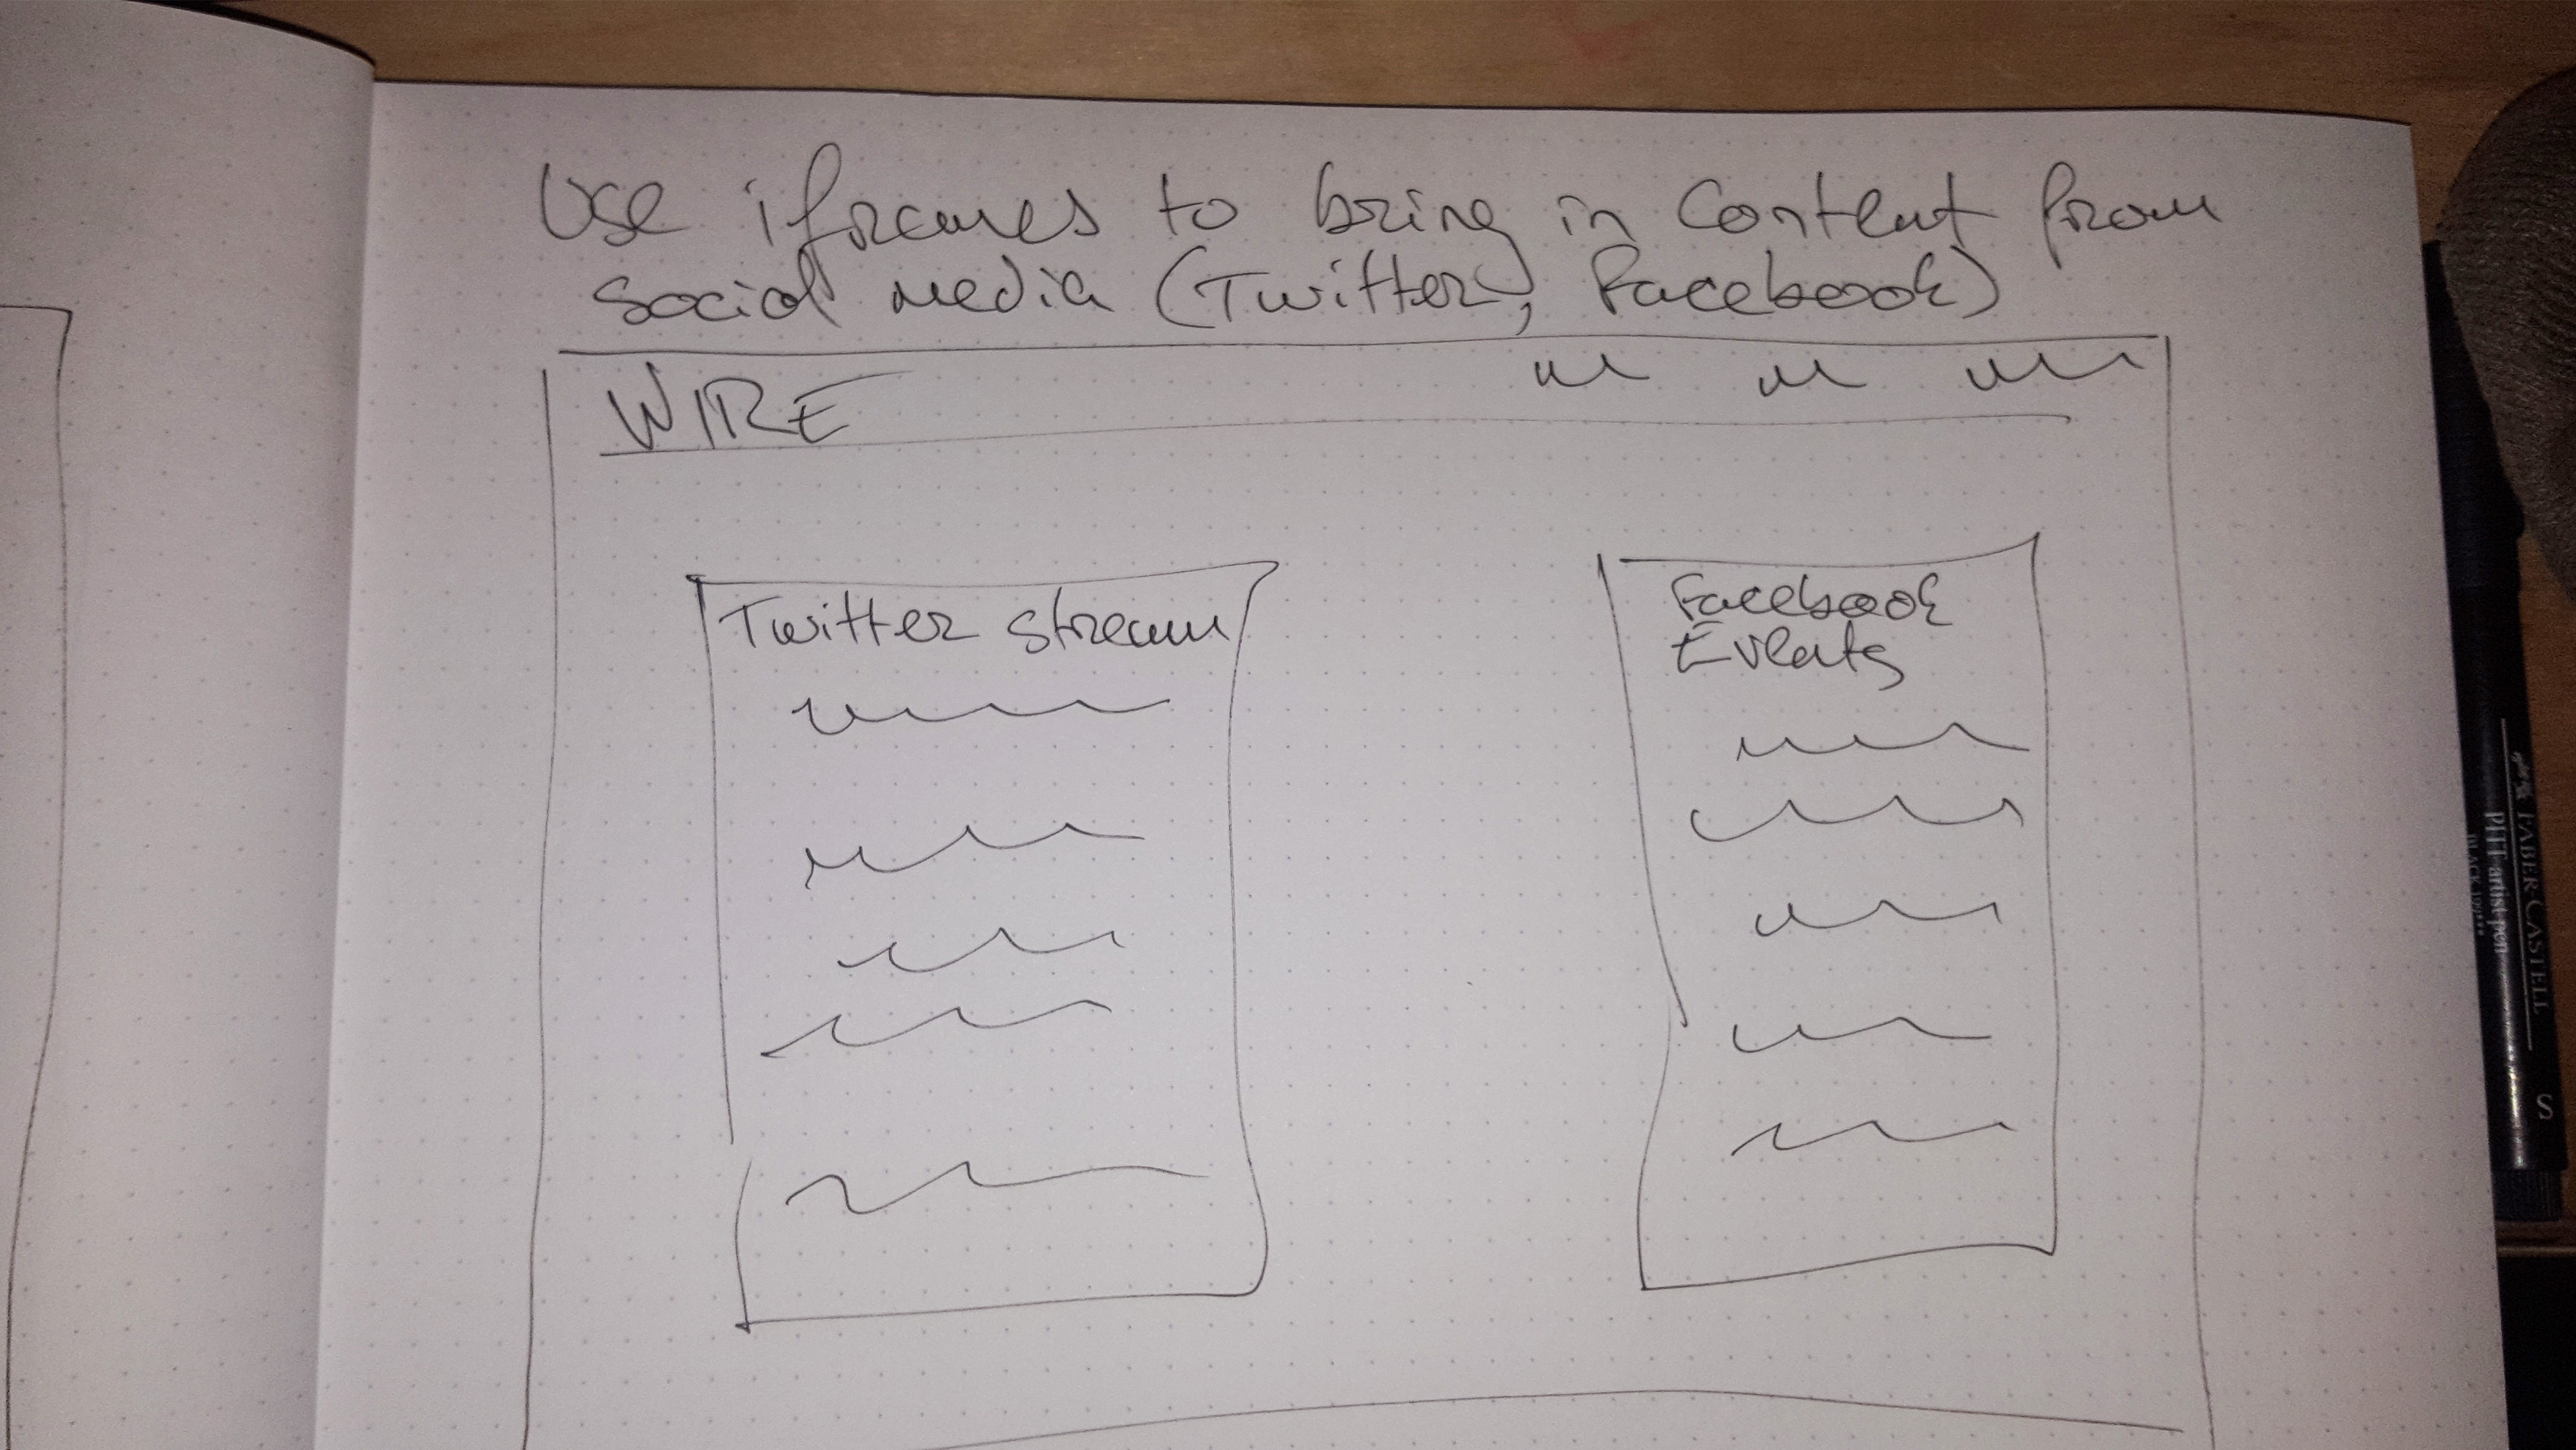 Use iframes to bring in content from
social media (Twitter, Facebook)
WIRE
Twitter stream
Facebook
Events
FABER-CASTELL
PITT artist pen
S